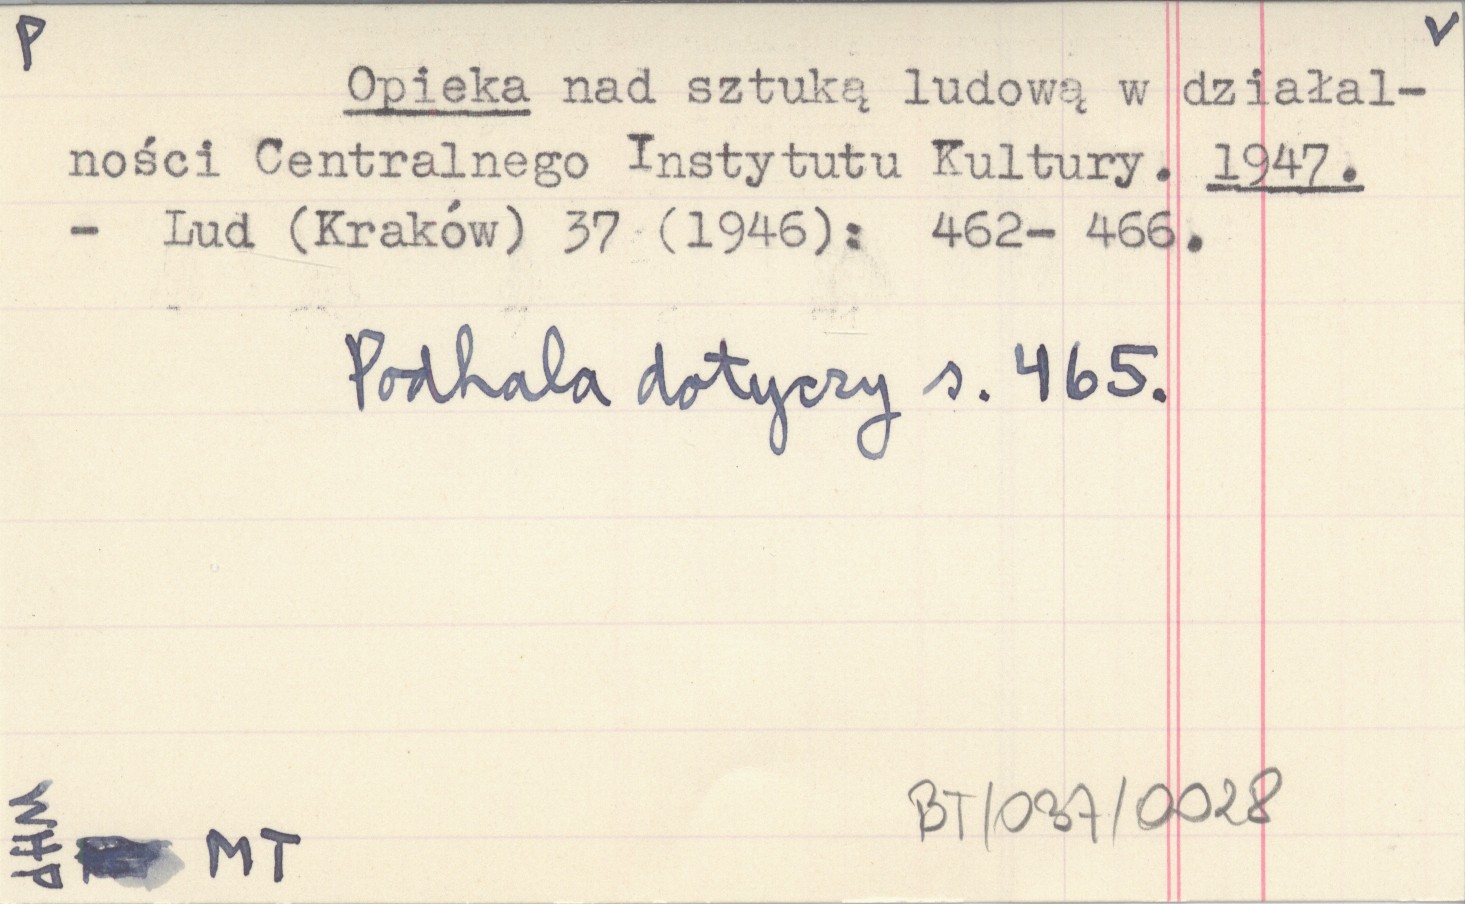 P
v
Opieka nad sztuką ludową w działal-
ności Centralnego Instytutu Kultury. 1947.
- Lud (Kraków) 37 (1946): 462- 466.
Podhala dotyczy s. 465.
BT/037/0028
WHP
MT